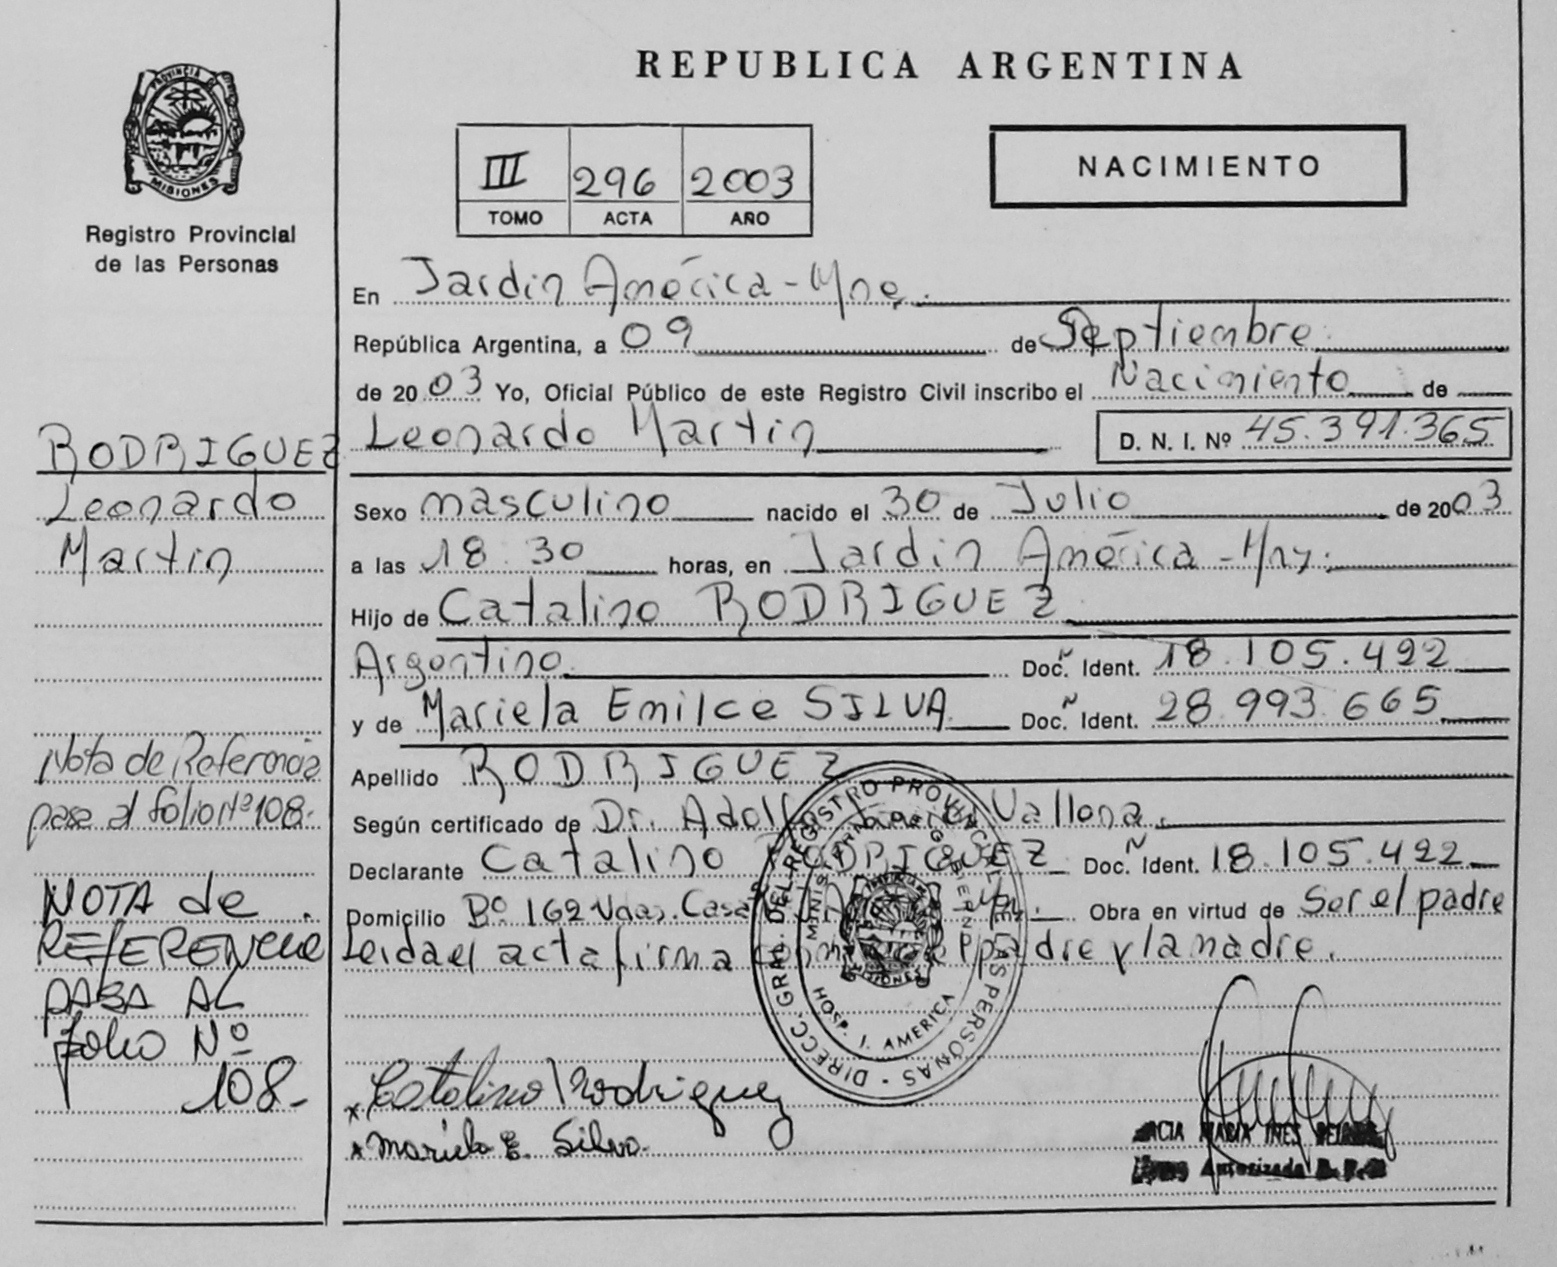 REPUBLICA ARGENTINA
PROVINCIA DE
MISIONES
Registro Provincial
de las Personas
III 296 2003
TOMO ACTA AÑO
NACIMIENTO
En Jardin América - Mnes.
República Argentina, a 09 de Septiembre
de 2003 Yo, Oficial Público de este Registro Civil inscribo el Nacimiento de
Leonardo Martin D. N. I. Nº 45.391.365
RODRIGUEZ
Leonardo
Martin
Sexo masculino nacido el 30 de Julio de 2003
a las 18.30 horas, en Jardin América -
Hijo de Catalino RODRIGUEZ
Argentino Doc. Ident. 18.105.422
y de Mariela Emilce SILVA Doc. Ident. 28.993.665
Apellido RODRIGUEZ
Según certificado de Dr. Vallona.
Declarante Catalino RODRIGUEZ Doc. Ident. 18.105.422
Domicilio Bº 162 Obra en virtud de Ser el padre
Leida el acta firma padre y la madre.
Nota de Referencia
pasa al folio Nº 108.
NOTA de
REFERENCIA
PASA AL
folio Nº
108-
DIRECC. GRAL. DEL REGISTRO PROVINCIAL DE LAS PERSONAS
HOSP. J. AMERICA
MISIONES
x Catalino Rodriguez
x Mariela E. Silva.
MARIA INES
Autorizada